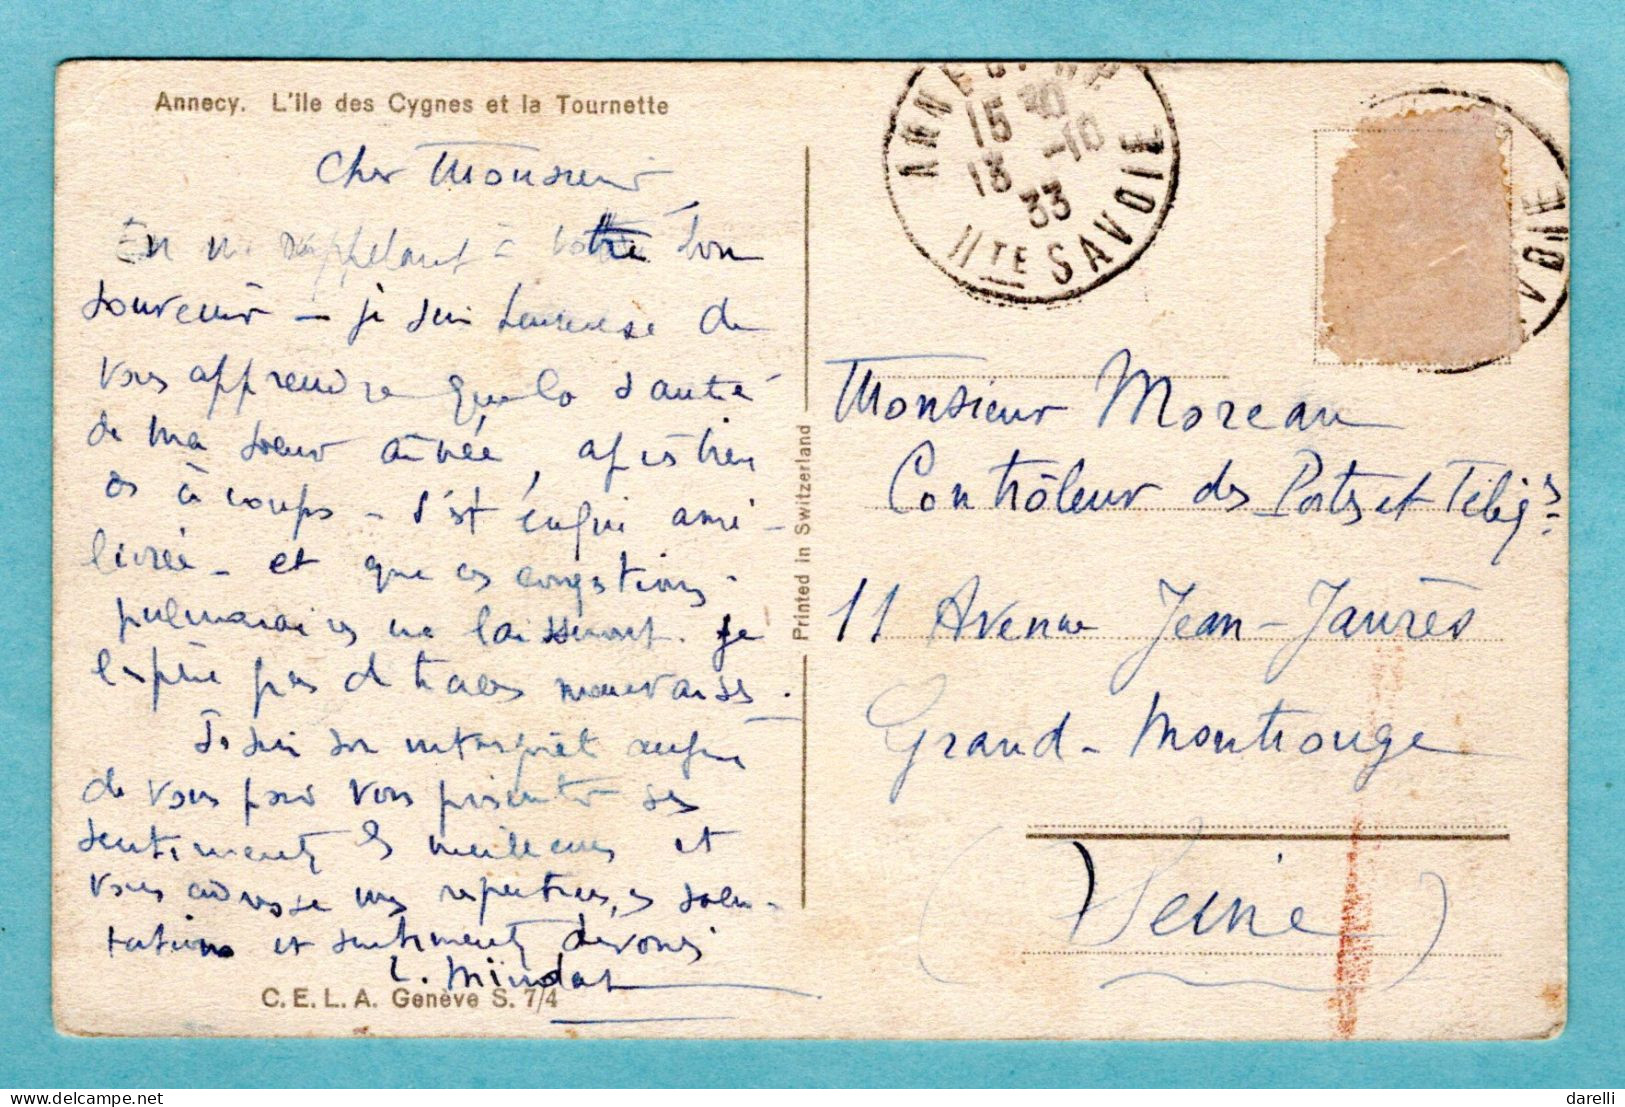 Annecy. L'Ile des Cygnes et la Tournette
Cher Monsieur
En me rappelant à votre bon
souvenir – je suis heureuse de
vous apprendre que la santé
de ma soeur aînée, après bien
des à coups – s'est enfin amé-
liorée – et que ces congestions
pulmonaires ne laisseront. Je
l'espère pas de traces mauvaises.
Je suis son interprète auprès
de vous pour vous présenter ses
sentiments les meilleurs et
vous adresse mes respectueuses salu-
tations et sentiments dévoués
L. Mindas
C. E. L. A. Genève S. 7/4
Printed in Switzerland
ANNECY
15 30
13 -10
33
HTE SAVOIE
VOIE
Monsieur Moreau
Contrôleur des Postes et Télégs
11 Avenue Jean-Jaurès
Grand-Montrouge
(Seine)
darelli © delcampe.net